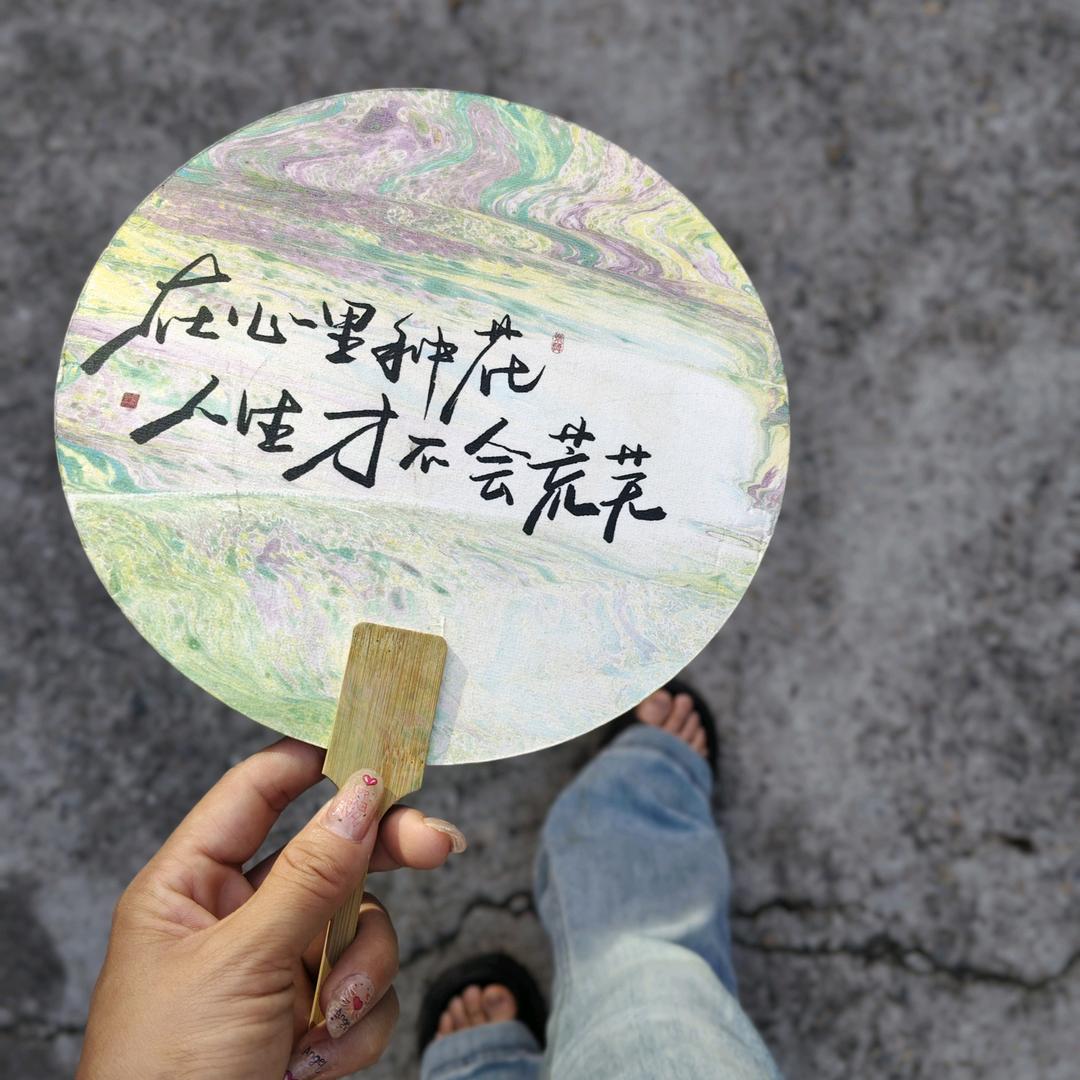 在心里种花
人生才不会荒芜
Angel
Angel